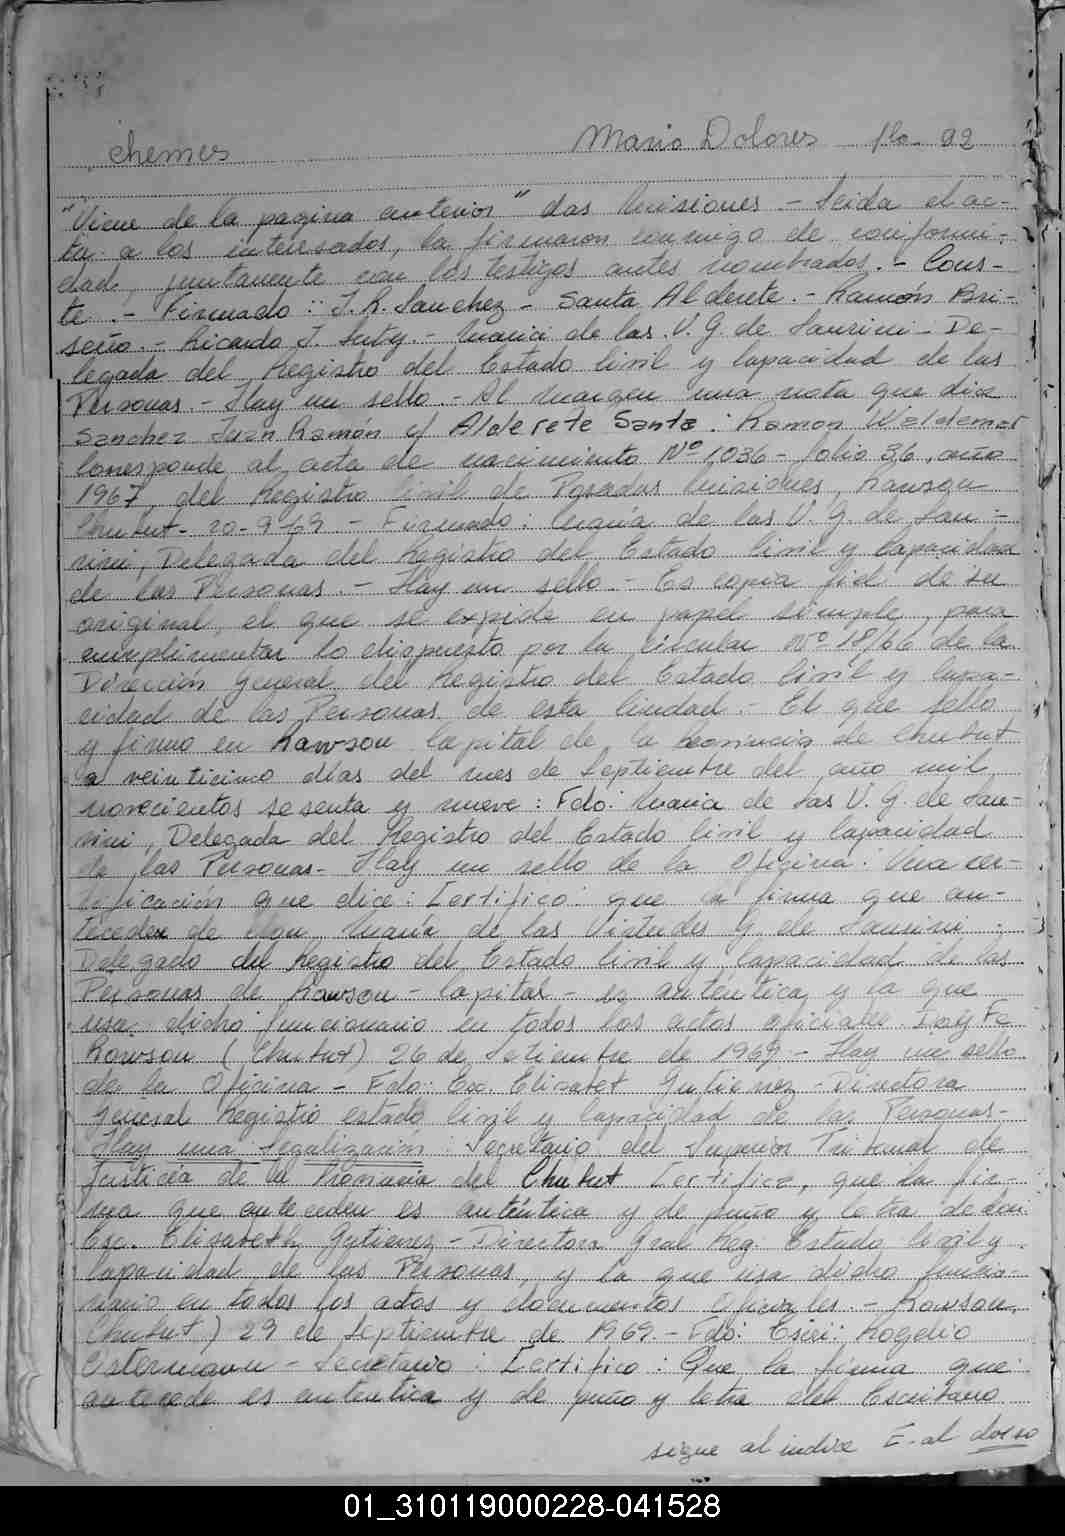 Chemes Maria Dolores flo- 92
"Viene de la pagina anterior" das Misiones - Leida el ac-
ta a los interesados, la firmaron conmigo de conformi-
dad, juntamente con los testigos antes nombrados. - Cons-
te. - Firmado: J. R. Sanchez - Santa Alderete. - Ramón Bri-
seño. - Ricardo J. - Maria de las V. G. de - De-
legada del Registro del Estado Civil y Capacidad de las
Personas. - Hay un sello. - Al margen una nota que dice
Sanchez Juan Ramón y Alderete Santa: Ramon Waldemar
Corresponde al acta de nacimiento Nº 1036 - folio 36, año
1967, del Registro Civil de Posadas Misiones, Rawson
Chubut - 20-9-69 - Firmado: María de las V. G. de
Delegada del Registro del Estado Civil y Capacidad
de las Personas. - Hay un sello. - Es copia fiel de su
original, el que se expide en papel simple, para
cumplimentar lo dispuesto por la Circular Nº 18/66 de la
Dirección General del Registro del Estado Civil y Capa-
cidad de las Personas de esta Ciudad. - El que sello
y firmo en Rawson Capital de la Provincia de Chubut
a veinticinco días del mes de Septiembre del año mil
novecientos sesenta y nueve: Fdo: Maria de las V. G. de
Delegada del Registro del Estado Civil y Capacidad
de las Personas - Hay un sello de la Oficina: Una cer-
tificación que dice: Certifico: que la firma que an-
tecede de María de las Virtudes G. de
Delegado del Registro del Estado Civil y Capacidad de las
Personas de Rawson - Capital - es autentica y la que
usa dicho funcionario en todos los actos oficiales. Doy Fe
Rawson (Chubut) 26 de Setiembre de 1969 - Hay un sello
de la Oficina - Fdo: Esc. Elisabet Gutierrez - Directora
General Registro estado Civil y Capacidad de las Personas-
Hay una Legalización: Secretario del Superior Tribunal de
Justicia de la Provincia del Chubut Certifica, que la fir-
ma que anteceden es auténtica y de puño y letra de
Esc. Elisabeth Gutierrez - Directora Gral Reg. Estado Civil y
Capacidad de las Personas, y la que usa dicho funcio-
nario en todos los actos y documentos Oficiales. - Rawson,
Chubut) 29 de Septiembre de 1969 - Fdo: Rogelio
Ostermann - Secretario: Certifico: Que la firma que
antecede es autentica y de puño y letra del Escribano
sigue al indice E-al dorso
01_310119000228-041528